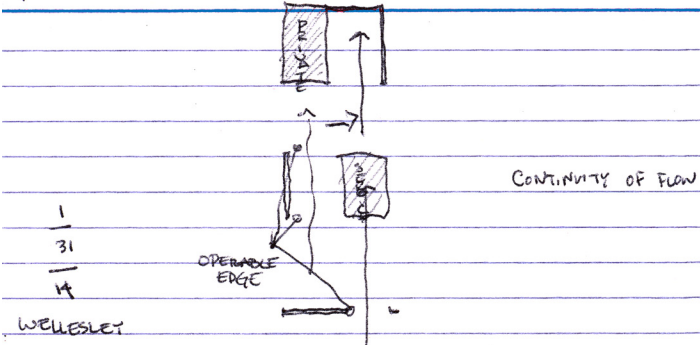 PRIVATE
CONTINUITY OF FLOW
1
31
14
OPERABLE
EDGE
WELLESLEY